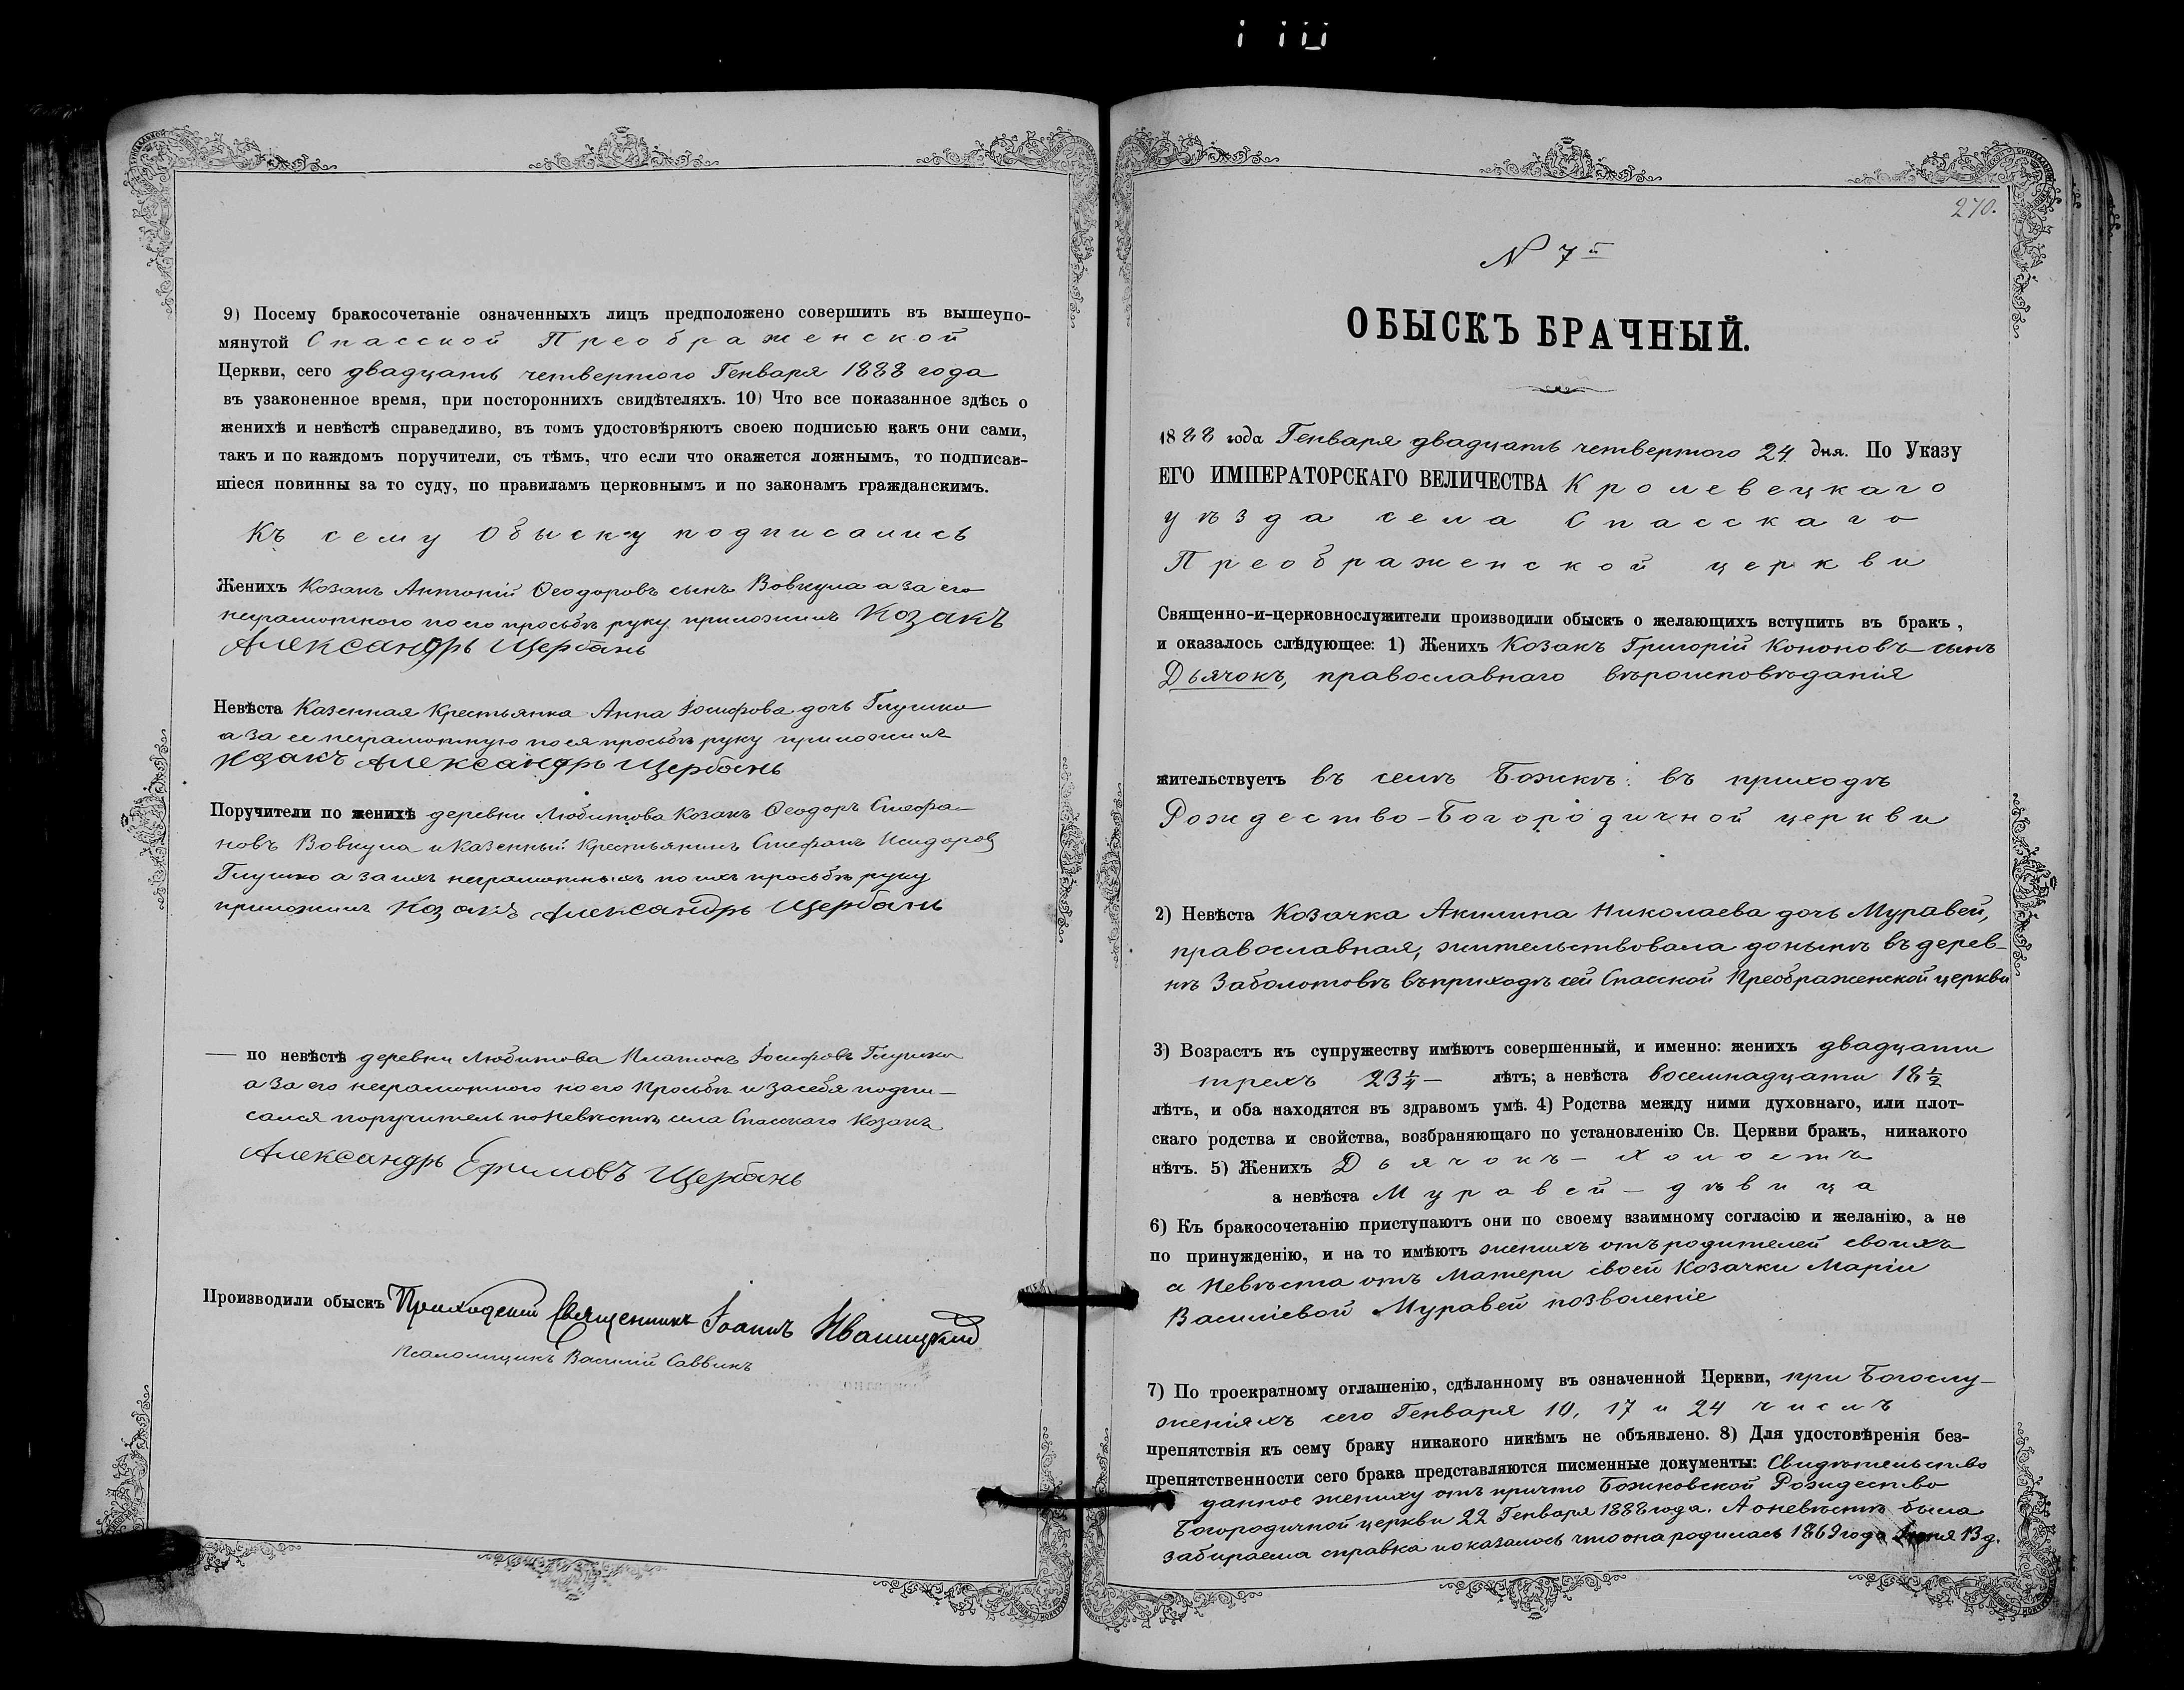 9) Посему бракосочетаніе означенныхъ лицъ предположено совершить въ вышеупо-
мянутой Спасской Преображенской
Церкви, сего двадцать четвертого Генваря 1888 года
въ узаконенное время, при постороннихъ свидѣтеляхъ. 10) Что все показанное здѣсь о
женихѣ и невѣстѣ справедливо, въ томъ удостовѣряютъ своею подписью какъ они сами,
такъ и по каждомъ поручители, съ тѣмъ, что если что окажется ложнымъ, то подписав-
шіеся повинны за то суду, по правиламъ церковнымъ и по законамъ гражданскимъ.
Къ сему Обыску подписались
Женихъ Козакъ Антоній Ѳеодоровъ сынъ Вовкула а за его
неграмотного по его просьбѣ руку приложилъ Козакъ
Александръ Щербань
Невѣста Казенная Крестьянка Анна Іосифова дочь Глушко
а за ее неграмотную по ея просьбѣ руку приложилъ
Козакъ Александръ Щербань
Поручители по женихѣ деревни Любитова Козакъ Ѳеодоръ Стефа-
новъ Вовкула и Казенный Крестьянинъ Стефанъ Исидоровъ
Глушко а за ихъ неграмотныхъ по ихъ просьбѣ руку
приложилъ Козакъ Александръ Щербань
— по невѣстѣ деревни Любитова Платонъ Іосифовъ Глушко
а за его неграмотного по его просьбѣ и за себя подпи-
сался поручитель по Невѣстѣ села Спасскаго Козакъ
Александръ Ефимовъ Щербань
Производили обыскъ Приходскій Священникъ Іоаннъ Иваницкій
Псаломщикъ Василій Саввинъ
270.
N 7й
ОБЫСКЪ БРАЧНЫЙ.
1888 года Генваря двадцать четвертого 24 дня. По Указу
ЕГО ИМПЕРАТОРСКАГО ВЕЛИЧЕСТВА Кролевецкаго
уѣзда села Спасскаго
Преображенской церкви
Священно-и-церковнослужители производили обыскъ о желающихъ вступить въ бракъ,
и оказалось слѣдующее: 1) Женихъ Козакъ Григорій Кононовъ сынъ
Дьячокъ, православнаго вѣроисповѣданія
жительствуетъ въ селѣ Божкѣ: въ приходѣ
Рождество-Богородичной церкви
2) Невѣста Козачка Акилина Николаева дочь Муравей,
православная, жительствовала донынѣ въ дерев-
нѣ Заболотовѣ въ приходѣ сей Спасской Преображенской церкви
3) Возрастъ къ супружеству имѣютъ совершенный, и именно: женихъ двадцати
трехъ 23 1/4 — лѣтъ; а невѣста восемнадцати 18 1/2
лѣтъ, и оба находятся въ здравомъ умѣ. 4) Родства между ними духовнаго, или плот-
скаго родства и свойства, возбраняющаго по установленію Св. Церкви бракъ, никакого
нѣтъ. 5) Женихъ Дьячокъ — холостъ
а невѣста Муравей — дѣвица
6) Къ бракосочетанію приступаютъ они по своему взаимному согласію и желанію, а не
по принужденію, и на то имѣютъ женихъ отъ родителей своихъ
а Невѣста отъ Матери своей Козачки Маріи
Василіевой Муравей позволеніе
7) По троекратному оглашенію, сдѣланному въ означенной Церкви, при Богослу-
женіяхъ сего Генваря 10, 17 и 24 числъ
препятствія къ сему браку никакого никѣмъ не объявлено. 8) Для удостовѣренія без-
препятственности сего брака представляются писменные документы: Свидѣтельство
данное жениху отъ причто Божковской Рождество
Богородичной церкви 22 Генваря 1888 года. А о невѣстѣ была
забираема справка показалось что она родилась 1869 года 13 д.